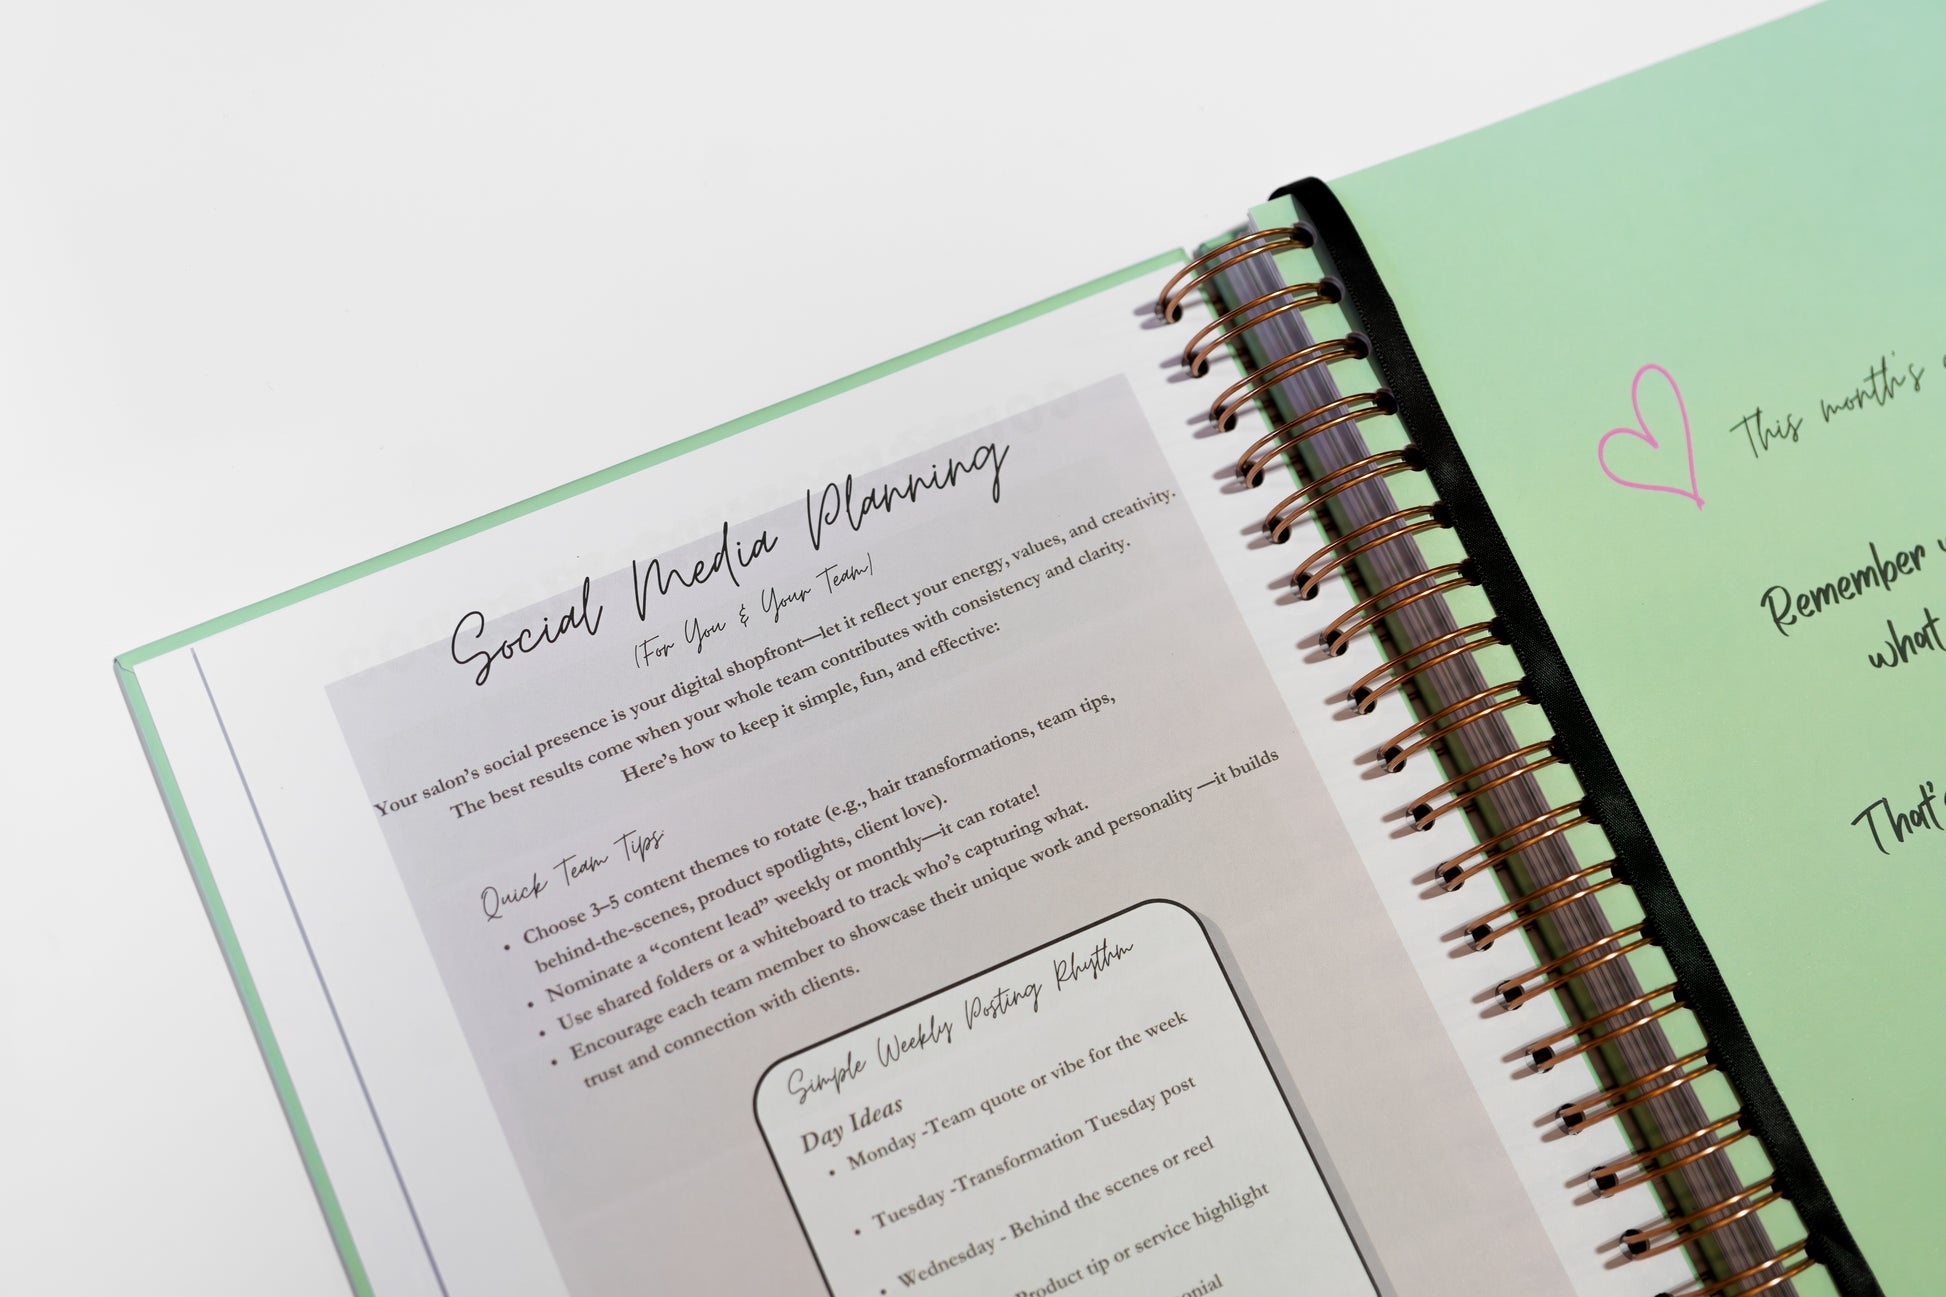 Social Media Planning
(For You & Your Team)
Your salon's social presence is your digital shopfront—let it reflect your energy, values, and creativity.
The best results come when your whole team contributes with consistency and clarity.
Here's how to keep it simple, fun, and effective:
Quick Team Tips
• Choose 3–5 content themes to rotate (e.g., hair transformations, team tips,
behind-the-scenes, product spotlights, client love).
• Nominate a “content lead” weekly or monthly—it can rotate!
• Use shared folders or a whiteboard to track who's capturing what.
• Encourage each team member to showcase their unique work and personality —it builds
trust and connection with clients.
Simple Weekly Posting Rhythm
Day Ideas
• Monday -Team quote or vibe for the week
• Tuesday -Transformation Tuesday post
• Wednesday - Behind the scenes or reel
Product tip or service highlight
This month's
Remember
what